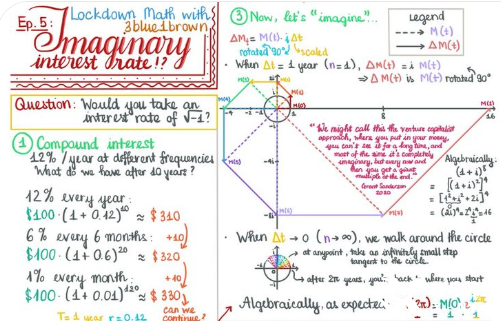 Ep. 5:
Lockdown Math with
3blue1brown
Imaginary
interest rate!?
Question: Would you take an
interest rate of √-1?
① Compound interest
12% /year at different frequencies
What do we have after 10 years?
12% every year:
$100 · (1 + 0.12)¹⁰ ≈ $ 310
6% every 6 months:
+10
$100 · (1 + 0.6)²⁰ ≈ $ 320
1% every month:
+10
$100 · (1 + 0.01)¹²⁰ ≈ $ 330
can we
continue?
T = 1 year r = 0.12
③ Now, let's "imagine"...
ΔM₁ = M(t) · i Δt
rotated 90° scaled
Legend
M(t)
ΔM(t)
· When Δt = 1 year (n=1), ΔM(t) = i M(t)
⇒ ΔM(t) is M(t) rotated 90°
-4
8
16
-4i
-8i
"We might call this the venture capitalist
approach, where you put in your money,
you can't see it for a long time, and
most of the time it's completely
imaginary, but every now and
then you get a giant
multiple at the end."
Grant Sanderson
2020
Algebraically:
(1+i)⁸
= [(1+i)²]⁴
= [1²+i²+2i]⁴
= (2i)⁴=2⁴i⁴=16
· When Δt → 0 (n→∞), we walk around the circle
at any point, take an infinitely small step
tangent to the circle
after 2π years, you're back where you start
Algebraically, as expected: